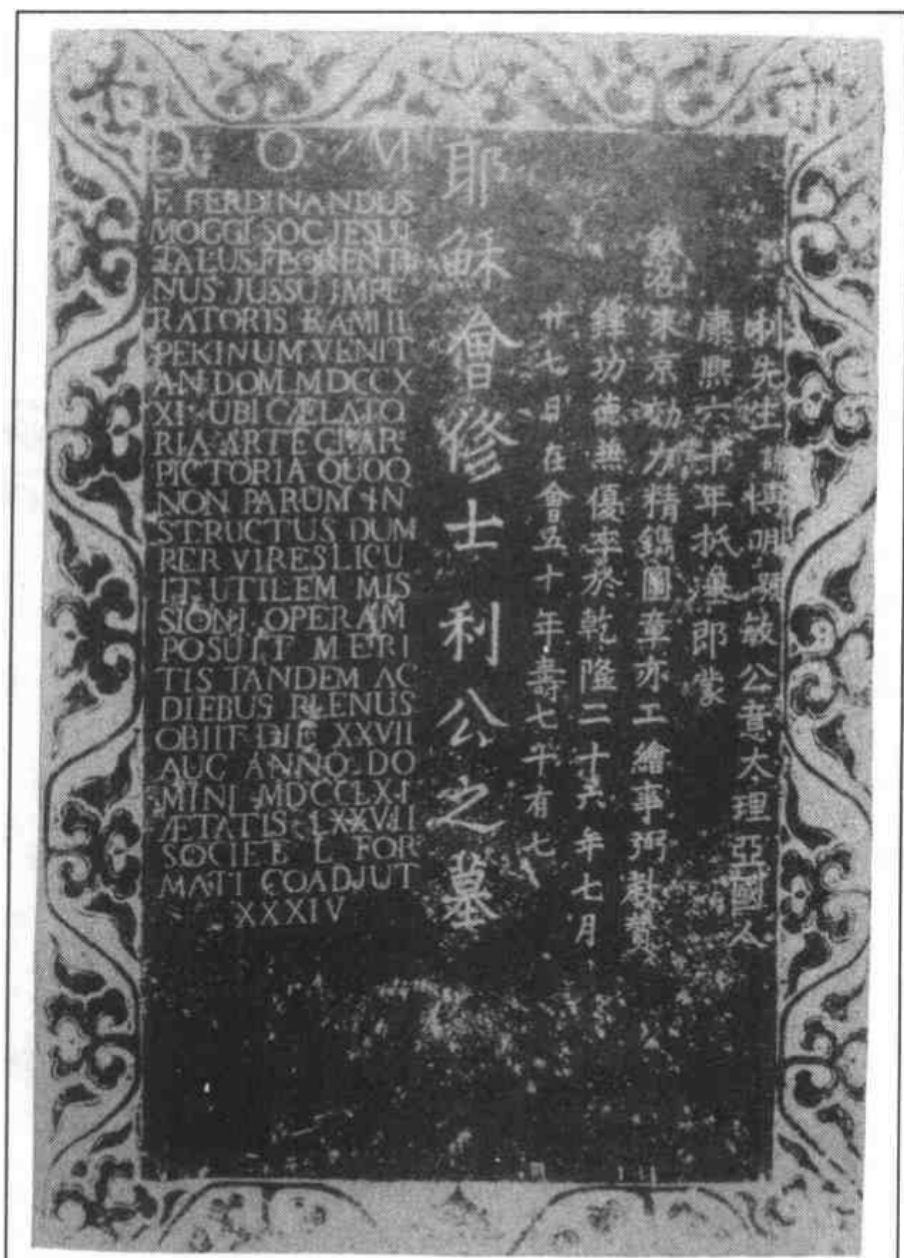 D O M
F. FERDINANDUS
MOGGI SOC JESU I
TALUS FLORENTI
NUS JUSSU IMPE
RATORIS KAM HI
PEKINUM VENIT
AN DOM MDCCX
XI UBI CÆLATO
RIA ARTE
PICTORIA QUOQ
NON PARUM IN
STRUCTUS DUM
PER VIRES LICU
IT UTILEM MIS
SIONI OPERAM
POSUIT MERI
TIS TANDEM AC
DIEBUS PLENUS
OBIIT DIE XXVII
AUG ANNO DO
MINI MDCCLXI
ÆTATIS LXXVII
SOCIE E L FOR
MATI COADJUT
XXXIV
耶穌會修士利公之墓
利先生諱博明號敏公意大理亞國人
康熙六十年抵瀛即蒙
欽召來京効力精鐫圖章亦工繪事弼教贊
鐸功德無優卒於乾隆二十六年七月
廿七日在會五十年壽七十有七